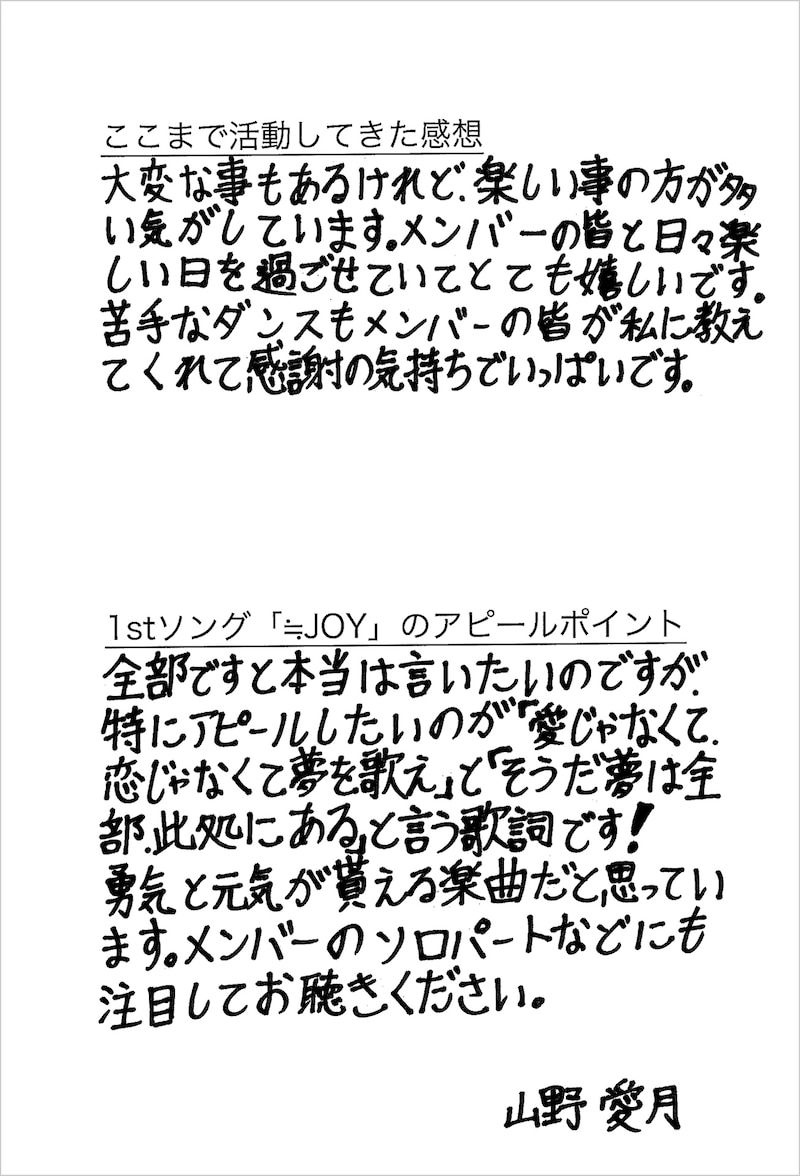 ここまで活動してきた感想
大変な事もあるけれど、楽しい事の方が多
い気がしています。メンバーの皆と日々楽
しい日を過ごせていてとても嬉しいです。
苦手なダンスもメンバーの皆が私に教え
てくれて感謝の気持ちでいっぱいです。
1stソング「≒JOY」のアピールポイント
全部ですと本当は言いたいのですが、
特にアピールしたいのが「愛じゃなくて、
恋じゃなくて夢を歌え」と「そうだ夢は全
部、此処にある」と言う歌詞です!
勇気と元気が貰える楽曲だと思ってい
ます。メンバーのソロパートなどにも
注目してお聴きください。
山野 愛月